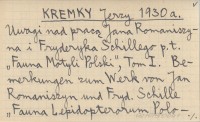 KREMKY Jerzy 1930 a.
Uwagi nad pracą Jana Romanisz-
yna i Fryderyka Schillego p.t.
„Fauna Motyli Polski", Tom I. Be-
merkungen zum Werk von Jan
Romaniszyn und Fryd. Schille
„Fauna Lepidopterorum Polo-